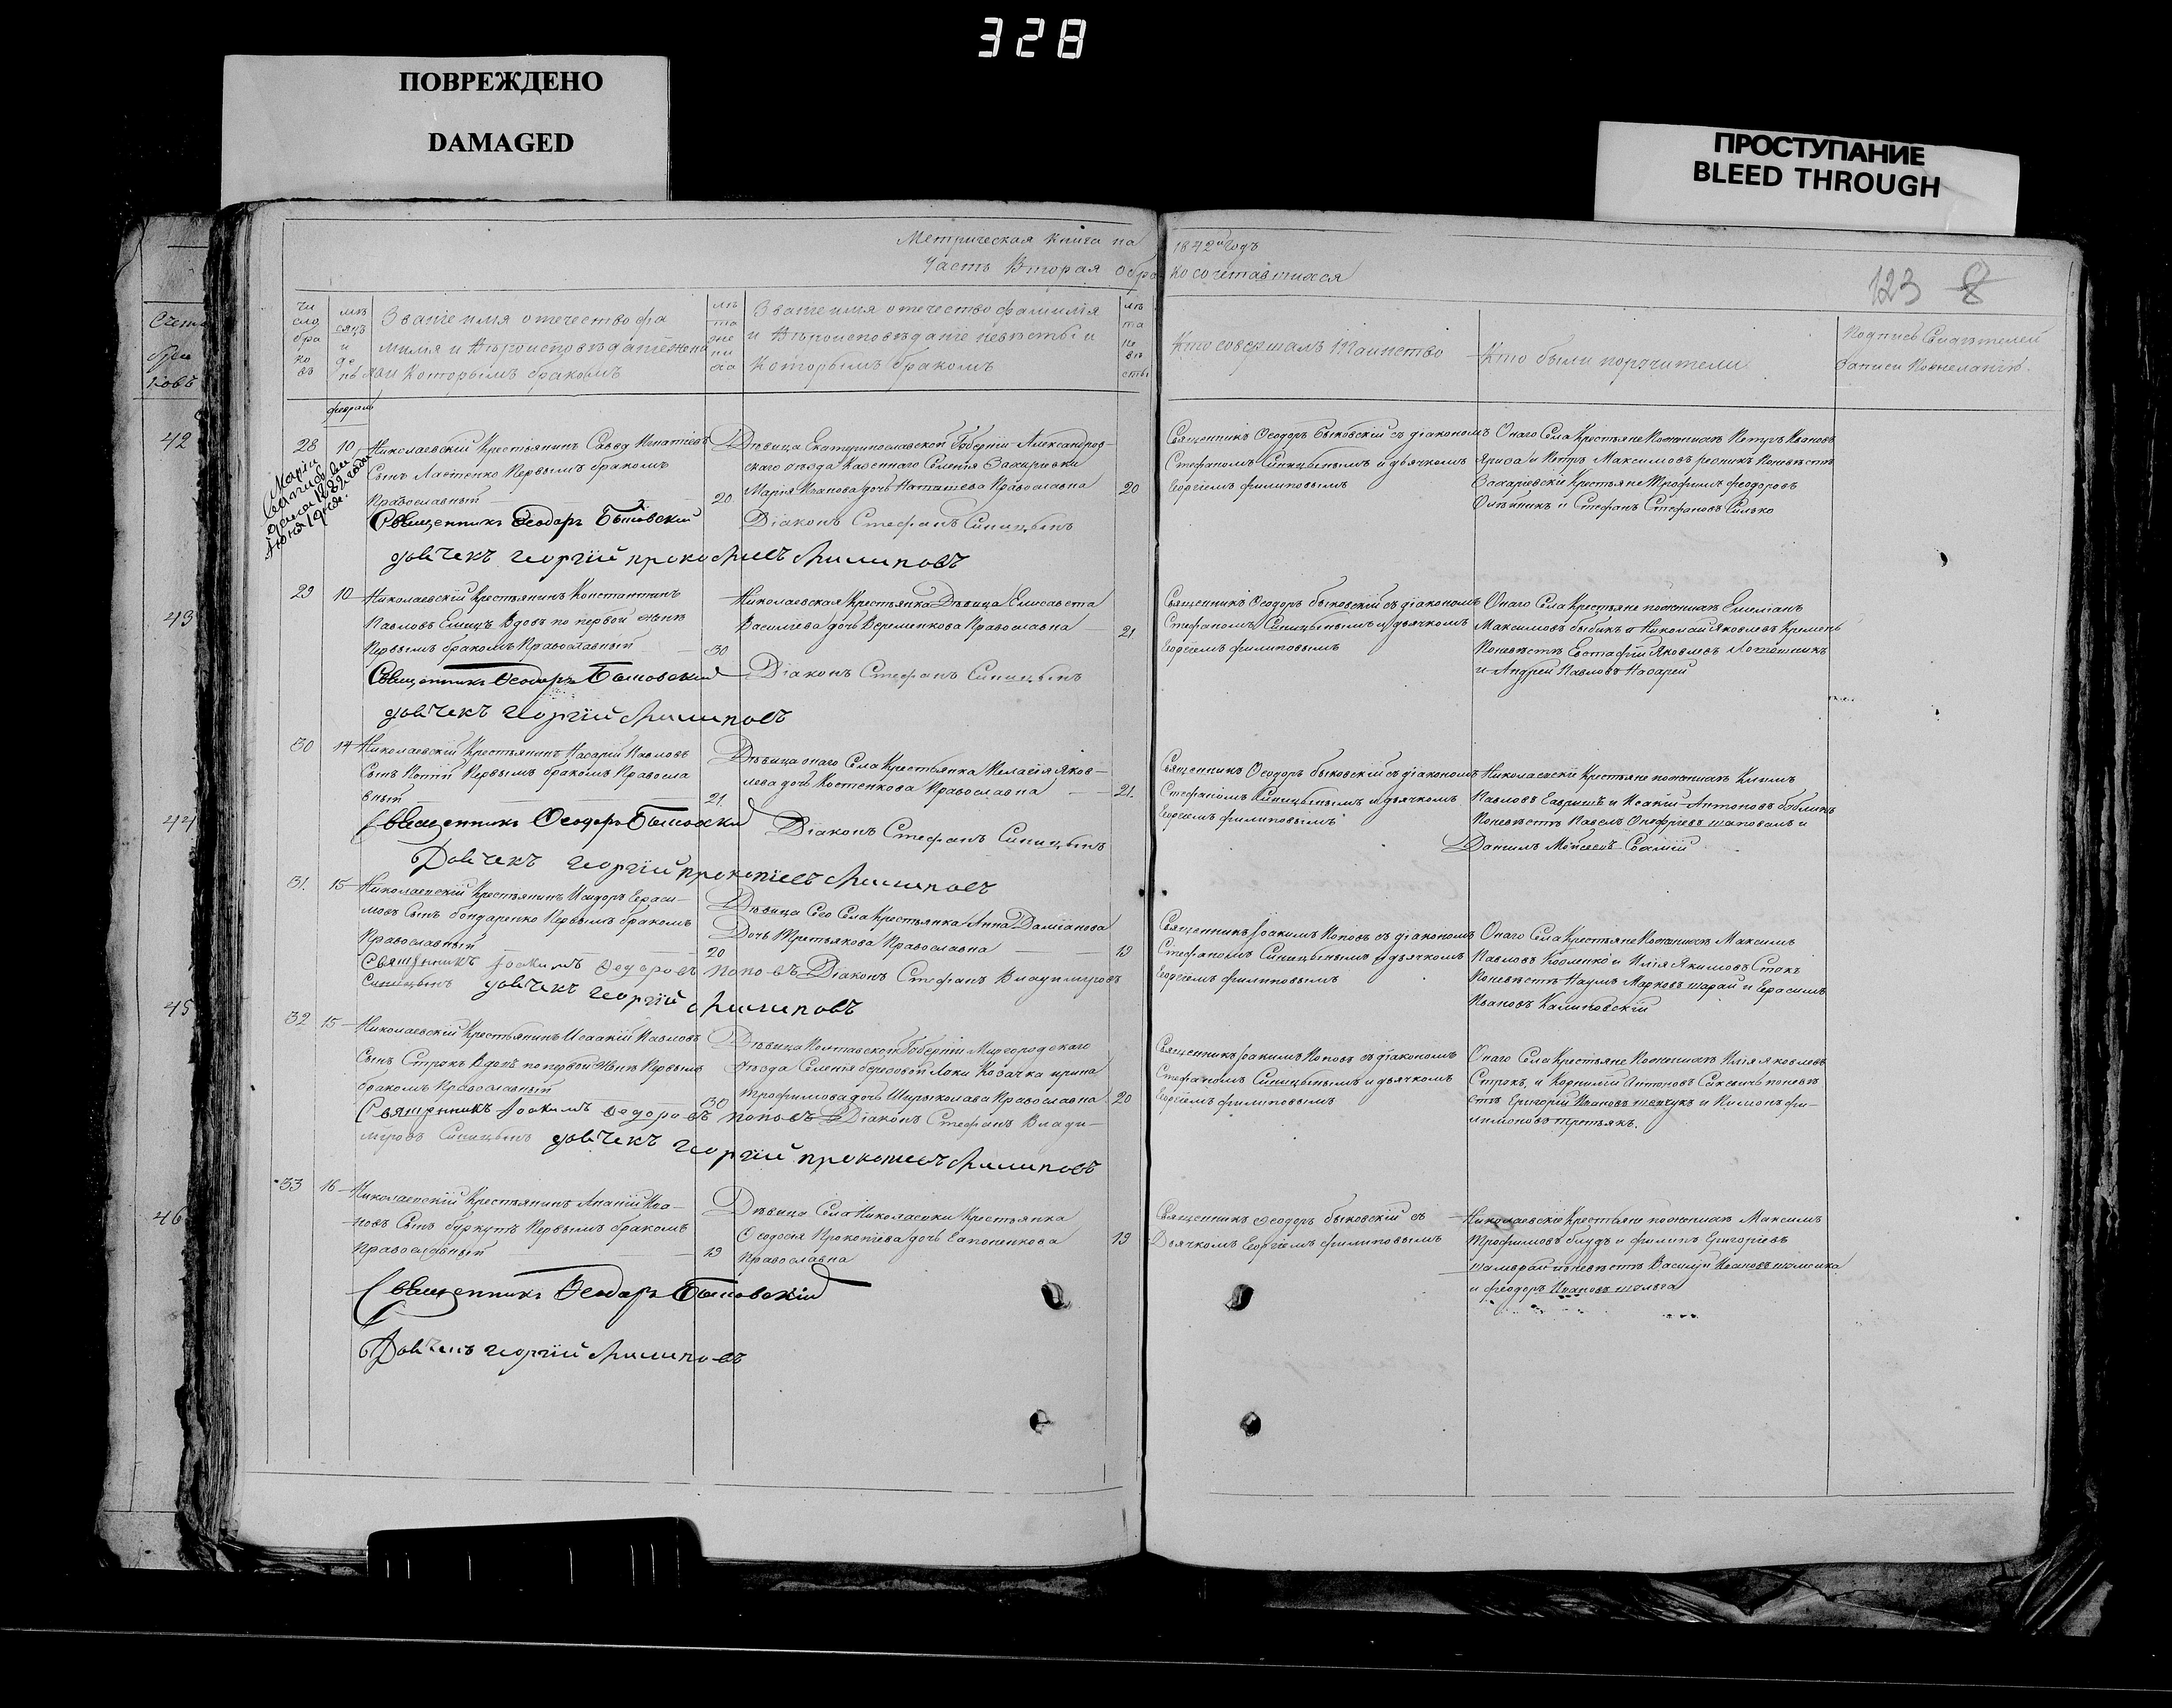 328
ПОВРЕЖДЕНО
DAMAGED
ПРОСТУПАНИЕ
BLEED THROUGH
Метрическая книга на 1842й Годъ
Часть Вторая о бракосочетавшихся
123 8
Счетъ
бра
ковъ
42
43
44
45
46
Чи
сло
бра
ко
въ
мѣ
сяцъ
и
де
нь
Званіе имя отечество фа
милія и Вѣроисповѣданіе жениха
и Которымъ бракомъ
лѣ
та
же
ни
ха
Званіе имя отечество фамилія
и Вѣроисповѣданіе невѣсты и
Которымъ бракомъ
лѣ
та
не
вѣ
сты
Кто совершалъ Таинство
Кто были поручители
Подпись Свидѣтелей
Записи По желанію.
февраль
28 10
Николаевскій Крестьянинъ Савва Игнатіевъ
Сынъ Ластенко Первымъ бракомъ
Православный 20
Дѣвица Екатеринославской Губерніи Александров-
скаго уѣзда Казеннаго Селенія Захаріевки
Марія Иванова дочь Православна 20
Священникъ Ѳеодоръ Быковскій съ діакономъ
Стефаномъ Синицынымъ и дьячкомъ
Георгіемъ филиповымъ
Онаго Села Крестьяне По женихѣ Петръ Ивановъ
и Петръ Максимовъ По невѣстѣ
Захаріевскіе Крестьяне Трофимъ феодоровъ
Олѣйникъ и Стефанъ Стефановъ Силько
Священникъ Ѳеодоръ Быковскій
Діаконъ Стефанъ Синицынъ
дьячекъ георгій прокофіевъ филиповъ
29 10
Николаевскій Крестьянинъ Константинъ
Павловъ Емецъ Вдовъ по первой женѣ
Первымъ бракомъ Православный 30
Николаевская Крестьянка Дѣвица Елисавета
Василіева дочь Веременкова Православна 21
Священникъ Ѳеодоръ быковскій съ діакономъ
Стефаномъ Синицынымъ и дьячкомъ
Георгіемъ филиповымъ
Онаго Села Крестьяне по женихѣ Емеліанъ
Максимовъ быбикъ и Николай Яковлевъ Кремень
По невѣстѣ Евстафій Яковлевъ
и Андрей Павловъ Назарей
Священникъ Ѳеодоръ Быковскій
Діаконъ Стефанъ Синицынъ
дьячекъ георгій филиповъ
30 14
Николаевскій Крестьянинъ Назарій Павловъ
Сынъ Первымъ бракомъ Правосла
вный 21.
Дѣвица онаго Села Крестьянка Мелаѳія Яков-
лева дочь Костенкова Православна 21.
Священникъ Ѳеодоръ быковскій съ діакономъ
Стефаномъ Синицынымъ и дьячкомъ
Георгіемъ филиповымъ
Николаевскіе Крестьяне по женихѣ Климъ
Павловъ Гавришъ и Исакій Антоновъ
По невѣстѣ Павелъ Онофріевъ шаповалъ и
Данилъ Мойсеевъ
Священникъ Ѳеодоръ Быковскій
Діаконъ Стефанъ Синицынъ
Дьячекъ георгій прокопіевъ филиповъ
31. 15
Николаевскій Крестьянинъ Исидоръ Гераси-
мовъ Сынъ бондаренко Первымъ бракомъ
Православный 20
Дѣвица Сего Села Крестьянка Анна Даміанова
Дочь Третьякова Православна 19
Священникъ Іоакимъ Поповъ съ діакономъ
Стефаномъ Синицынымъ и дьячкомъ
Георгіемъ филиповымъ
Онаго Села Крестьяне По женихѣ Максимъ
Павловъ Козленко и Илія Якимовъ
По невѣстѣ Наумъ Марковъ шарай и Герасимъ
Ивановъ Калиновскій
Священникъ Іоакимъ Ѳедоровъ поповъ Діаконъ Стефанъ Владимировъ
Синицынъ дьячекъ георгій филиповъ
32 15
Николаевскій Крестьянинъ Исаакій Павловъ
Сынъ Строкъ Вдовъ по первой Женѣ Первымъ
бракомъ Православный 30
Дѣвица Полтавской Губерніи Миргородскаго
уѣзда Селенія березовой Луки Козачка ирина
трофимова дочь Православна 20
Священникъ Іоакимъ Поповъ съ діакономъ
Стефаномъ Синицынымъ и дьячкомъ
Георгіемъ филиповымъ
Онаго Села Крестьяне По женихѣ Илія Яковлевъ
Строкъ и Корнилій Антоновъ по невѣ
стѣ Григорій Ивановъ шевчукъ и Пимонъ фи-
лимоновъ третьякъ.
Священникъ Іоакимъ Ѳедоровъ поповъ Діаконъ Стефанъ Влади-
мировъ Синицынъ дьячекъ георгій прокопіевъ филиповъ
33 16
Николаевскій Крестьянинъ Ананій Ива-
новъ Сынъ буркутъ Первымъ бракомъ
Православный 19
Дѣвица Села Николаевки Крестьянка
Ѳеодосія Прокопіева дочь Гапоненкова
Православна 19
Священникъ Ѳеодоръ быковскій съ
Дьячкомъ Георгіемъ филиповымъ
Николаевскіе Крестьяне по женихѣ Максимъ
Трофимовъ блудъ и филипъ Григоріевъ
по невѣстѣ Василій Ивановъ
и феодоръ Ивановъ шольга
Священникъ Ѳеодоръ Быковскій
Дьячекъ георгій филиповъ